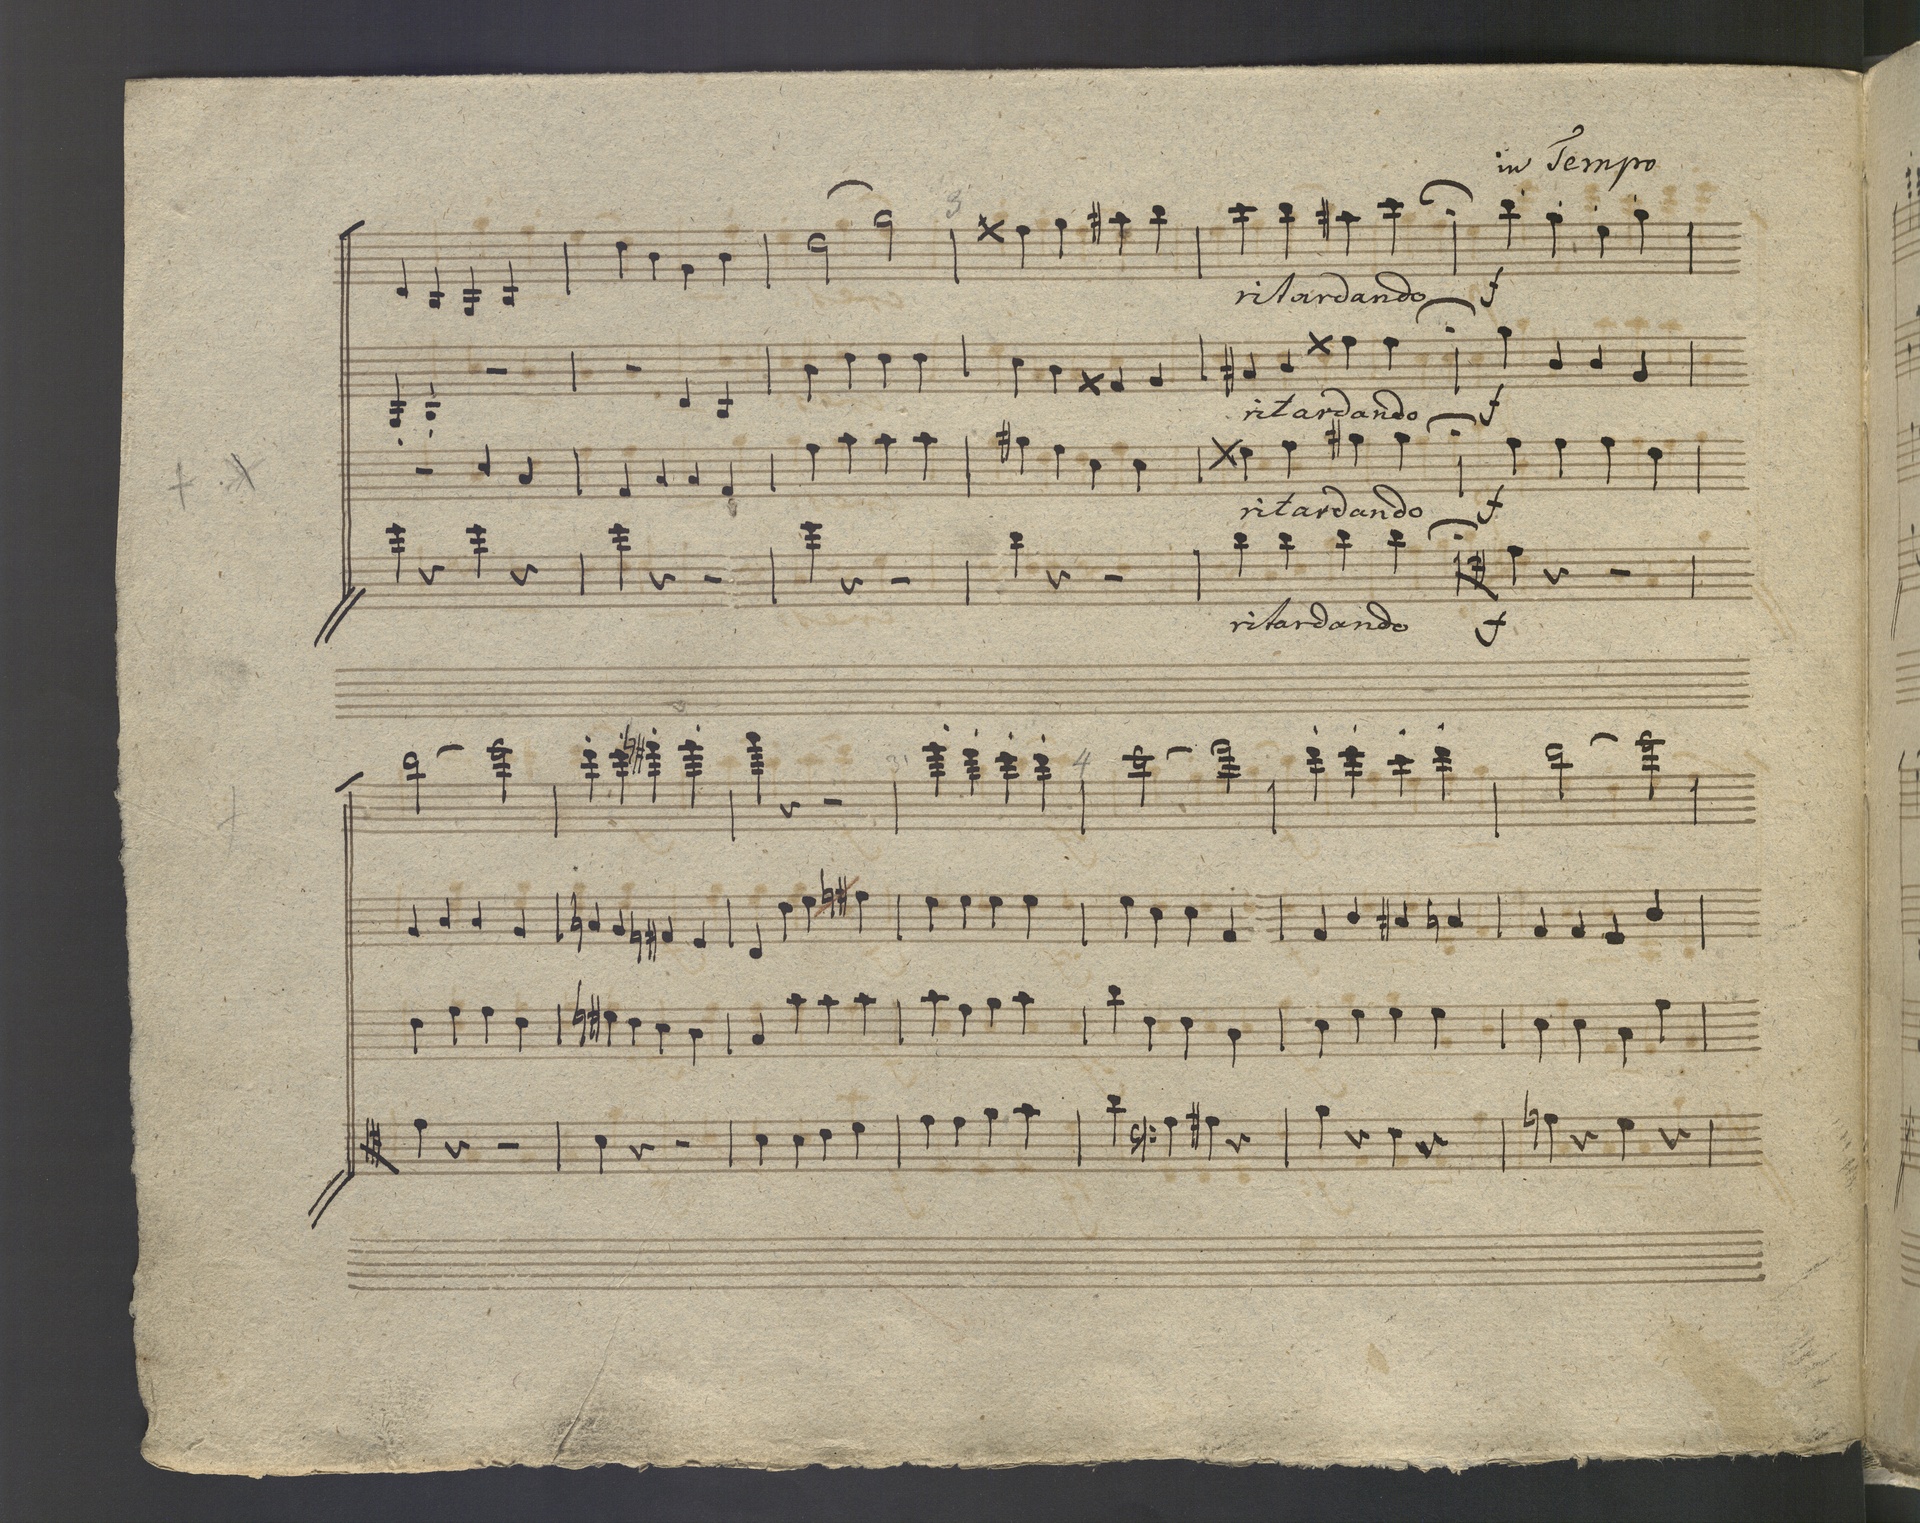 in Tempo
3
ritardando f
ritardando f
ritardando f
ritardando f
4